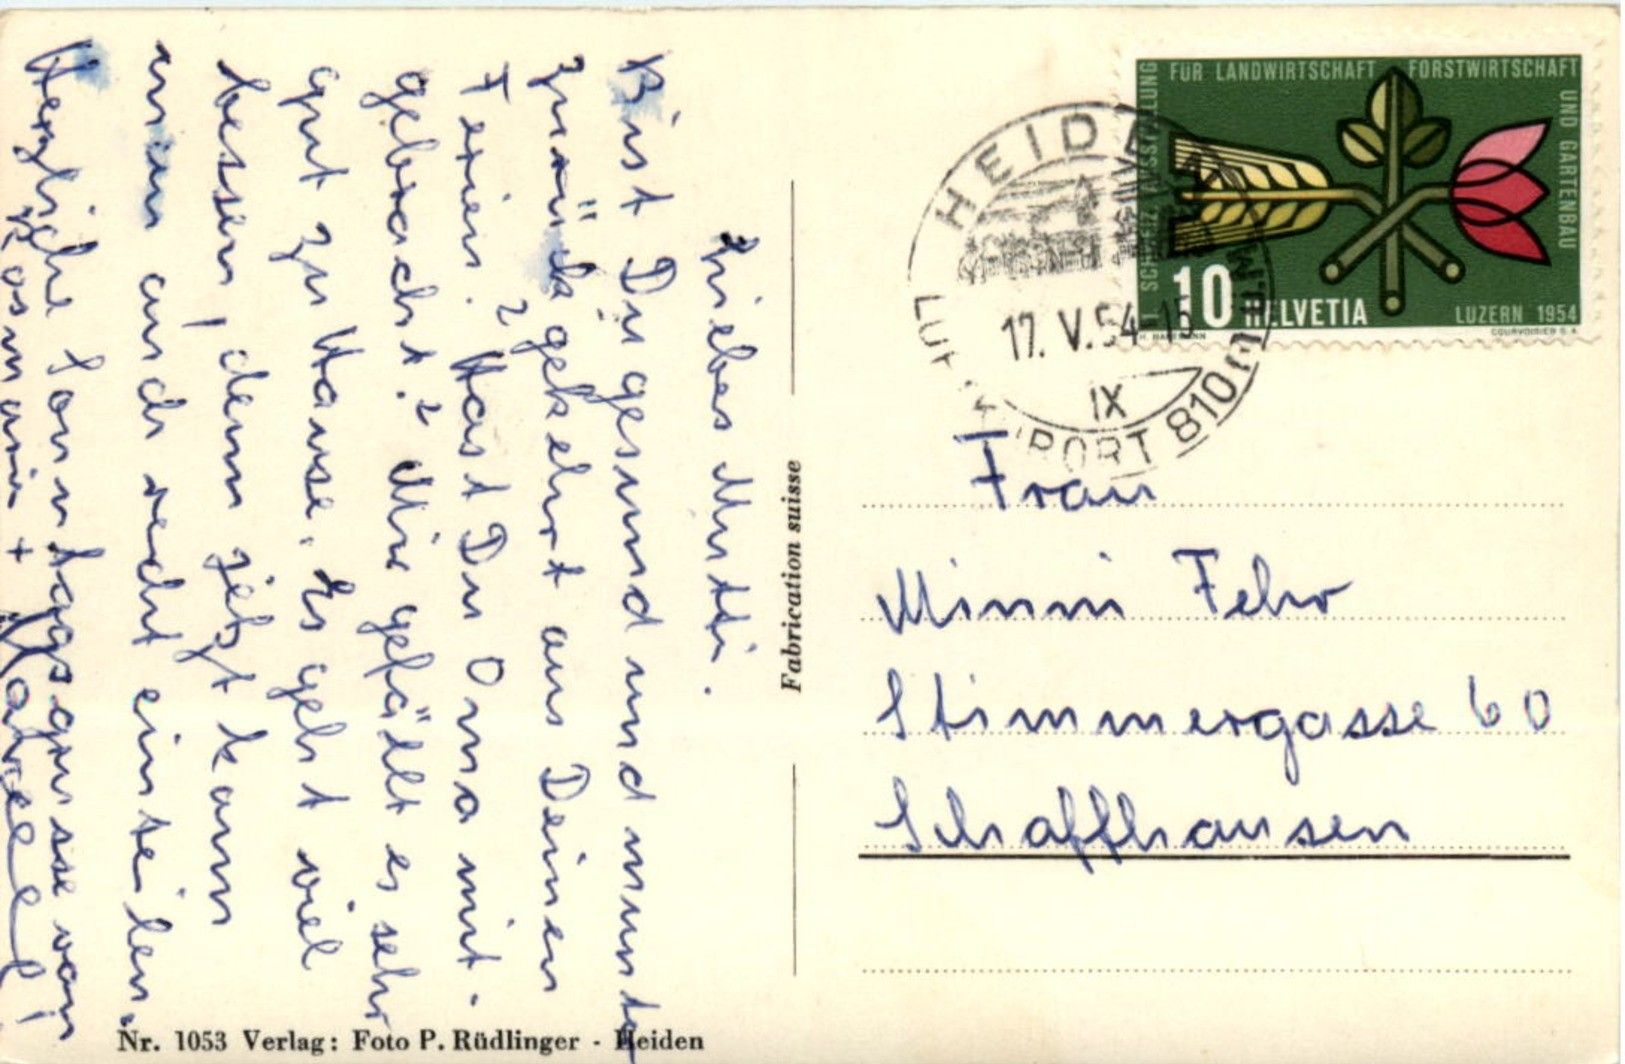 Liebes Mutti.
Bist Du gesund und munter
zurückgekehrt aus Deinen
Ferien? Hast Du Oma mit-
gebracht? Mir gefällt es sehr
gut zu Hause. Es geht viel
besser, denn jetzt kann
man auch recht einteilen.
Herzliche Sonntagsgrüsse von
Rosmarie +
Fabrication suisse
Nr. 1053 Verlag: Foto P. Rüdlinger - Heiden
HEIDEN
17. V. 54-15
IX
LUFTKURORT 810 m
XI. SCHWEIZ. AUSSTELLUNG
FÜR LANDWIRTSCHAFT FORSTWIRTSCHAFT
UND GARTENBAU
10 HELVETIA
LUZERN 1954
COURVOISIER S.A.
Frau
Minni Fehr
Stimmergasse 60
Schaffhausen